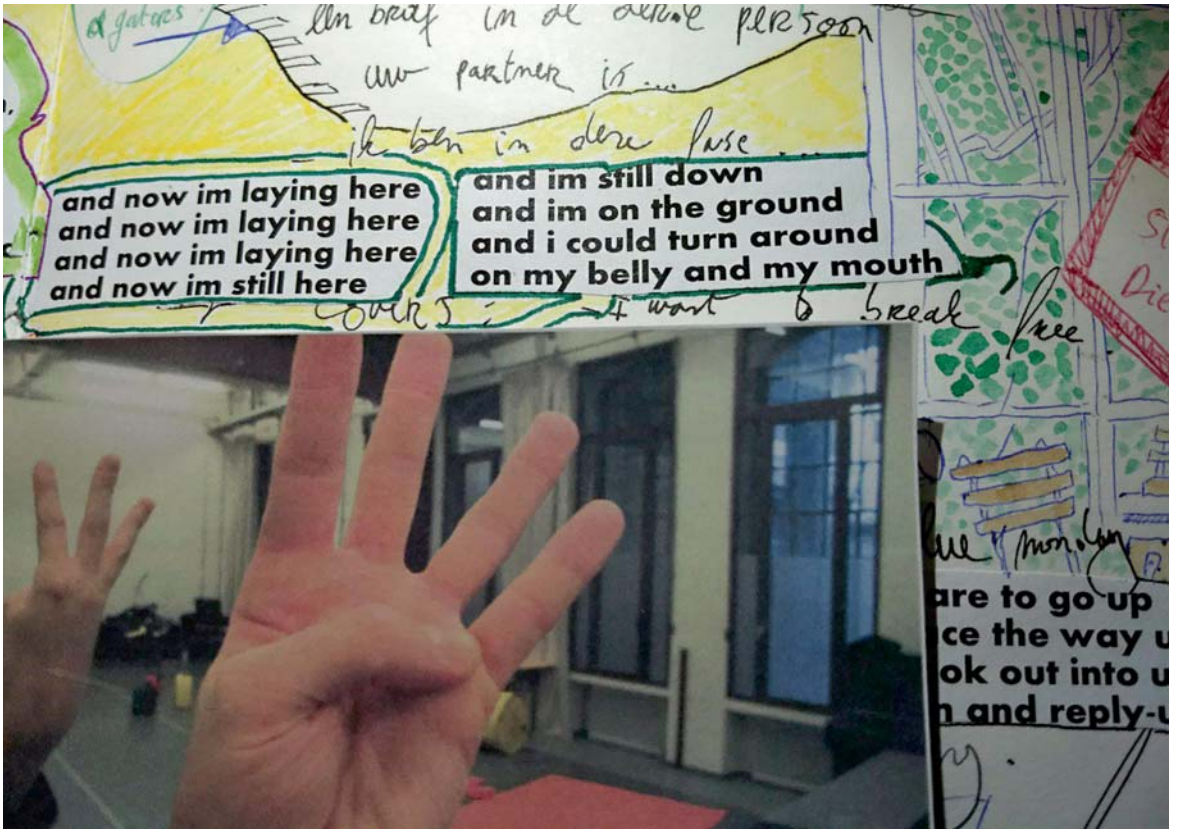 een brief in de derde persoon
uw partner is ....
ik ben in deze fase ....
and now im laying here
and now im laying here
and now im laying here
and now im still here
and im still down
and im on the ground
and i could turn around
on my belly and my mouth
covers : I want to break free
are to go up
ce the way u
ok out into u
n and reply-u